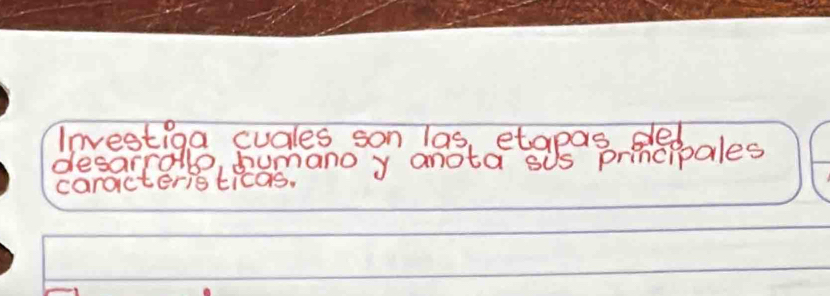 Investiga cuales son las etapas del
desarrollo humano y anota sus principales
caracteristicas.